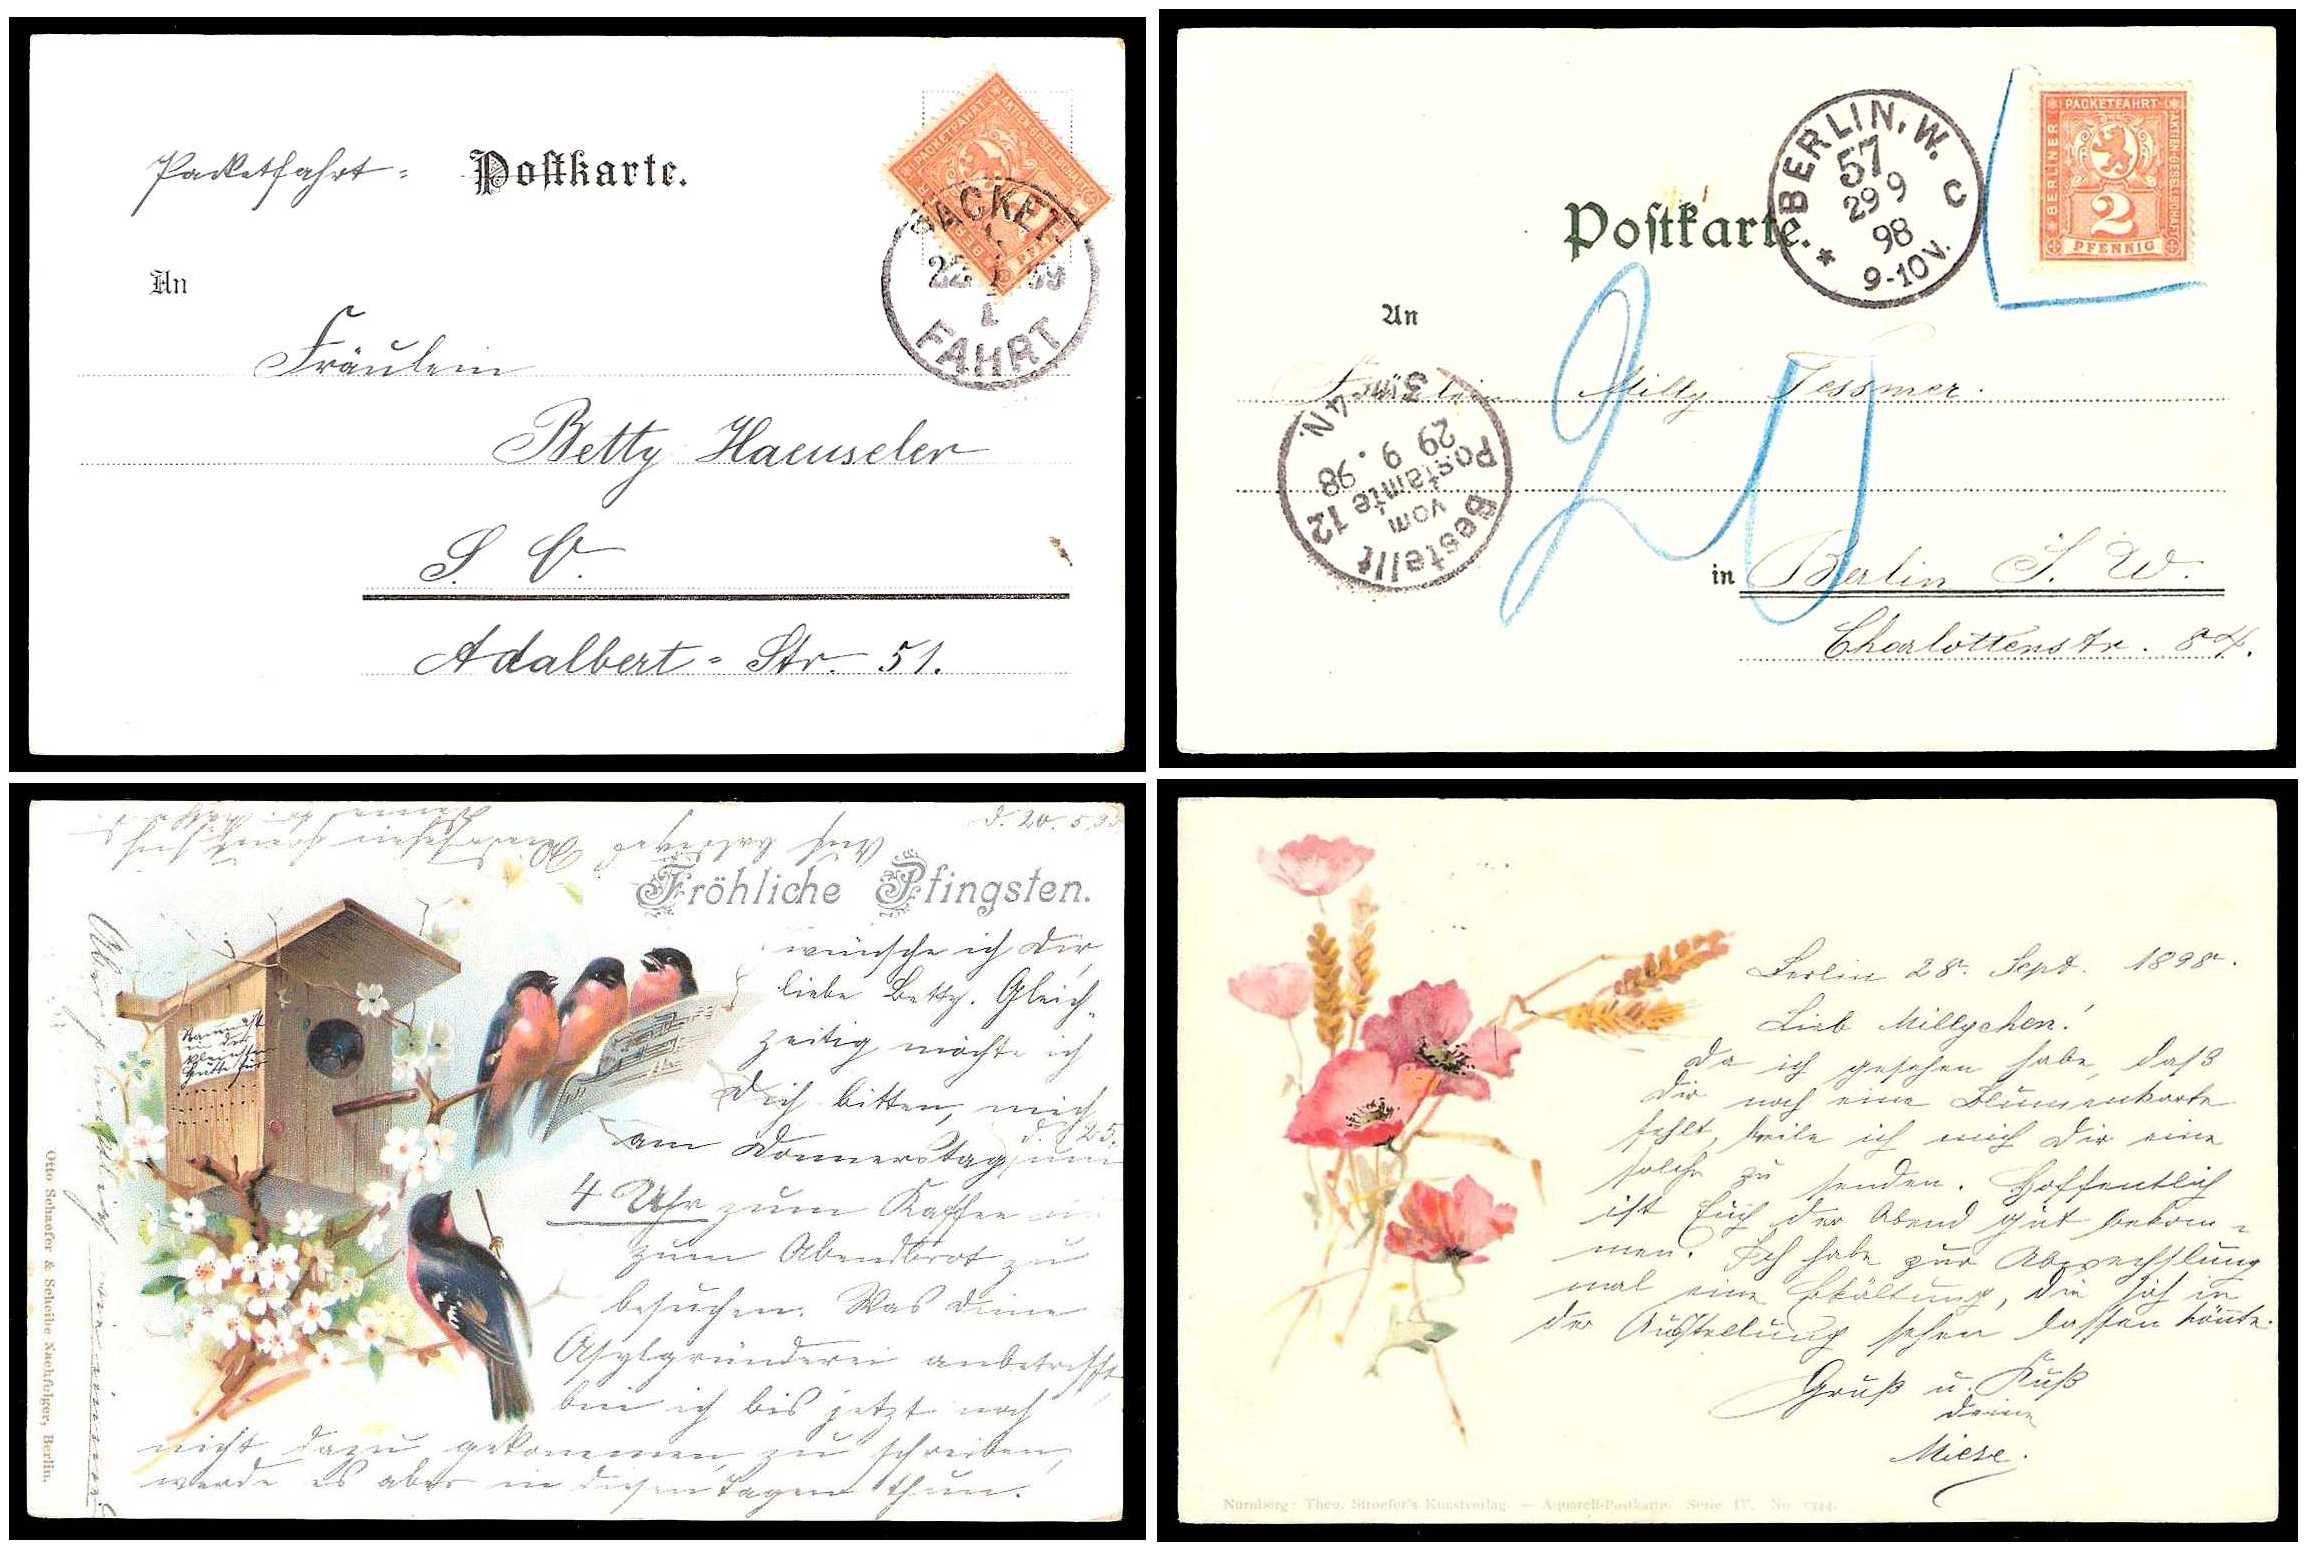 Packetfahrt = Postkarte.
BERLINER PACKETFAHRT AKTIEN-GESELLSCHAFT
PFENNIG
PACKET
FAHRT
An
Fräulein
Betty Haeuseler
S. O.
Adalbert = Str. 51.
Postkarte.
BERLIN, W. C
57
29 9
98
9-10V.
*
BERLINER PACKETFAHRT AKTIEN-GESELLSCHAFT
2
PFENNIG
20
An
Fräulein Milly Tessmer.
in Berlin S. W.
Charlottenstr. 84.
Bestellt
vom
Postamte 12
29 9. 98
3 4N.
d. 20. 5.
Fröhliche Pfingsten.
wünsche ich Dir,
liebe Betty. Gleich-
zeitig möchte ich
Dich bitten, mich
d. 25.
am Donnerstag, um
4 Uhr zum Kaffee
zum Abendbrot zu
besuchen. Was deine
Asylgründerei anbetrifft,
bin ich bis jetzt noch
nicht dazu gekommen, zu schreiben,
werde es aber in diesen Tagen thun.
Otto Schaefer & Scheibe Nachfolger, Berlin.
Berlin 28. Sept. 1898.
Lieb Millychen!
Da ich gesehen habe, daß
Dir noch eine Blumenkarte
fehlt, beeile ich mich Dir eine
solche zu senden. Hoffentlich
ist Euch der Abend gut bekom-
men. Ich habe zur Abwechslung
mal eine Erkältung, die sich in
der Ausstellung sehen lassen könnte.
Gruß u. Kuß
deine
Miese.
Nürnberg: Theo. Stroefer's Kunstverlag. — Aquarell-Postkarte. Serie IV. No.